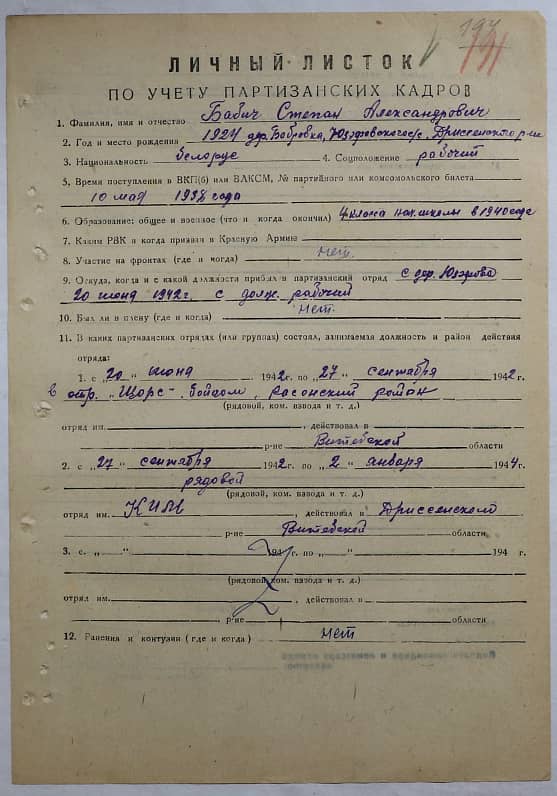 191
ЛИЧНЫЙ ЛИСТОК
ПО УЧЕТУ ПАРТИЗАНСКИХ КАДРОВ
1. Фамилия, имя и отчество Бабич Степан Александрович
2. Год и место рождения 1924 дер. Бобровка, с/с, Дриссенского р-н
3. Национальность белорус 4. Соцположение рабочий
5. Время поступления в ВКП(б) или ВЛКСМ, № партийного или комсомольского билета
10 мая 1938 года
6. Образование: общее и военное (что и когда окончил) 4 класа нач. школы в 1940 году
7. Каким РВК и когда призван в Красную Армию
8. Участие на фронтах (где и когда) нет.
9. Откуда, когда и с какой должности прибыл в партизанский отряд с дер.
20 июня 1942г. с долж. рабочий
10. Был ли в плену (где и когда) нет.
11. В каких партизанских отрядах (или группах) состоял, занимаемая должность и район действия
отряда:
1. с „20" июня 1942г. по „27" сентября 1942г.
в отр. "Щорс" бойцом, расонский район
(рядовой, ком. взвода и т. д.)
отряд им. , действовал в
р-не Витебской области
2. с „27" сентября 1942г. по „2" января 1944г.
рядовой
(рядовой, ком. взвода и т. д.)
отряд им. КИМ , действовал в Дриссенском
р-не Витебской области
3. с. „ " 194 г. по „ " 194 г.
(рядовой, ком. взвода и т. д.)
отряд им. , действовал в
р-не области
12. Ранения и контузии (где и когда) нет